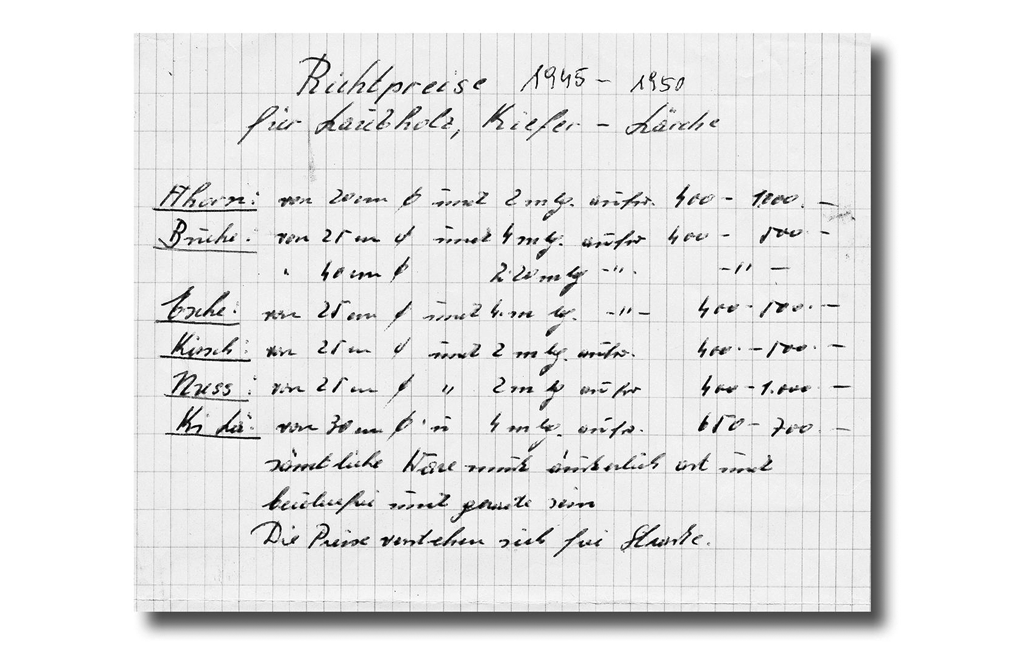 Richtpreise 1945 - 1950
für Laubholz, Kiefer - Lärche
Ahorn: von 20 cm ϕ und 2 m lg. aufw. 400 - 1000. -
Buche: von 25 cm ϕ und 4 m lg. aufw 400 - 500. -
" 40 cm ϕ 2.20 m lg -"- -"-
Esche: von 25 cm ϕ und 4. m lg. -"- 400 - 500. -
Kirsch: von 25 cm ϕ und 2 m lg. aufw. 400. - 500. -
Nuss: von 25 cm ϕ " 2 m lg aufw 400 - 1.000. -
Ki Lä: von 30 cm ϕ u 4 m lg. aufw. 650 - 700. -
sämtliche Ware muß äußerlich ast und
beulenfrei und gerade sein
Die Preise verstehen sich frei Straße.